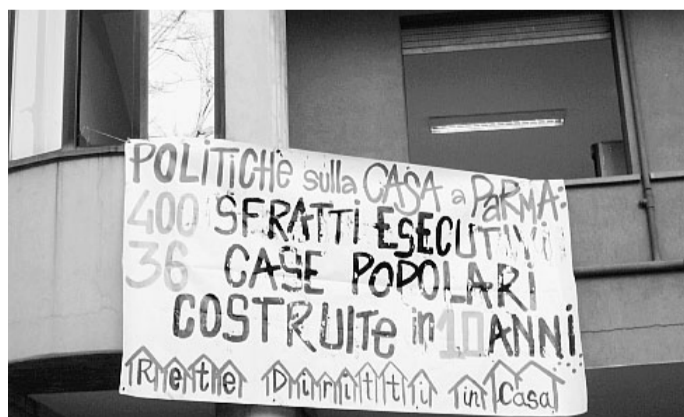 POLITICHE sulla CASA a PARMA:
400 SFRATTI ESECUTIVI
36 CASE POPOLARI
COSTRUITE in 10 ANNI
Rete Diritti in Casa